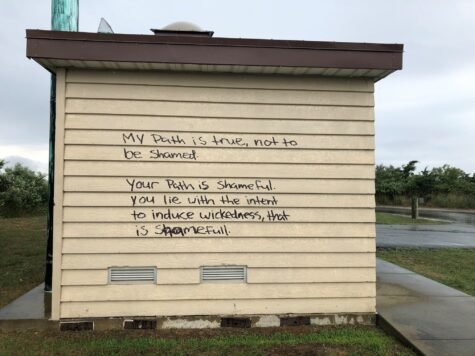 MY Path is true, not to
be Shamed.
Your Path is Shameful.
you lie with the intent
to induce wickedness, that
is Shamefull.